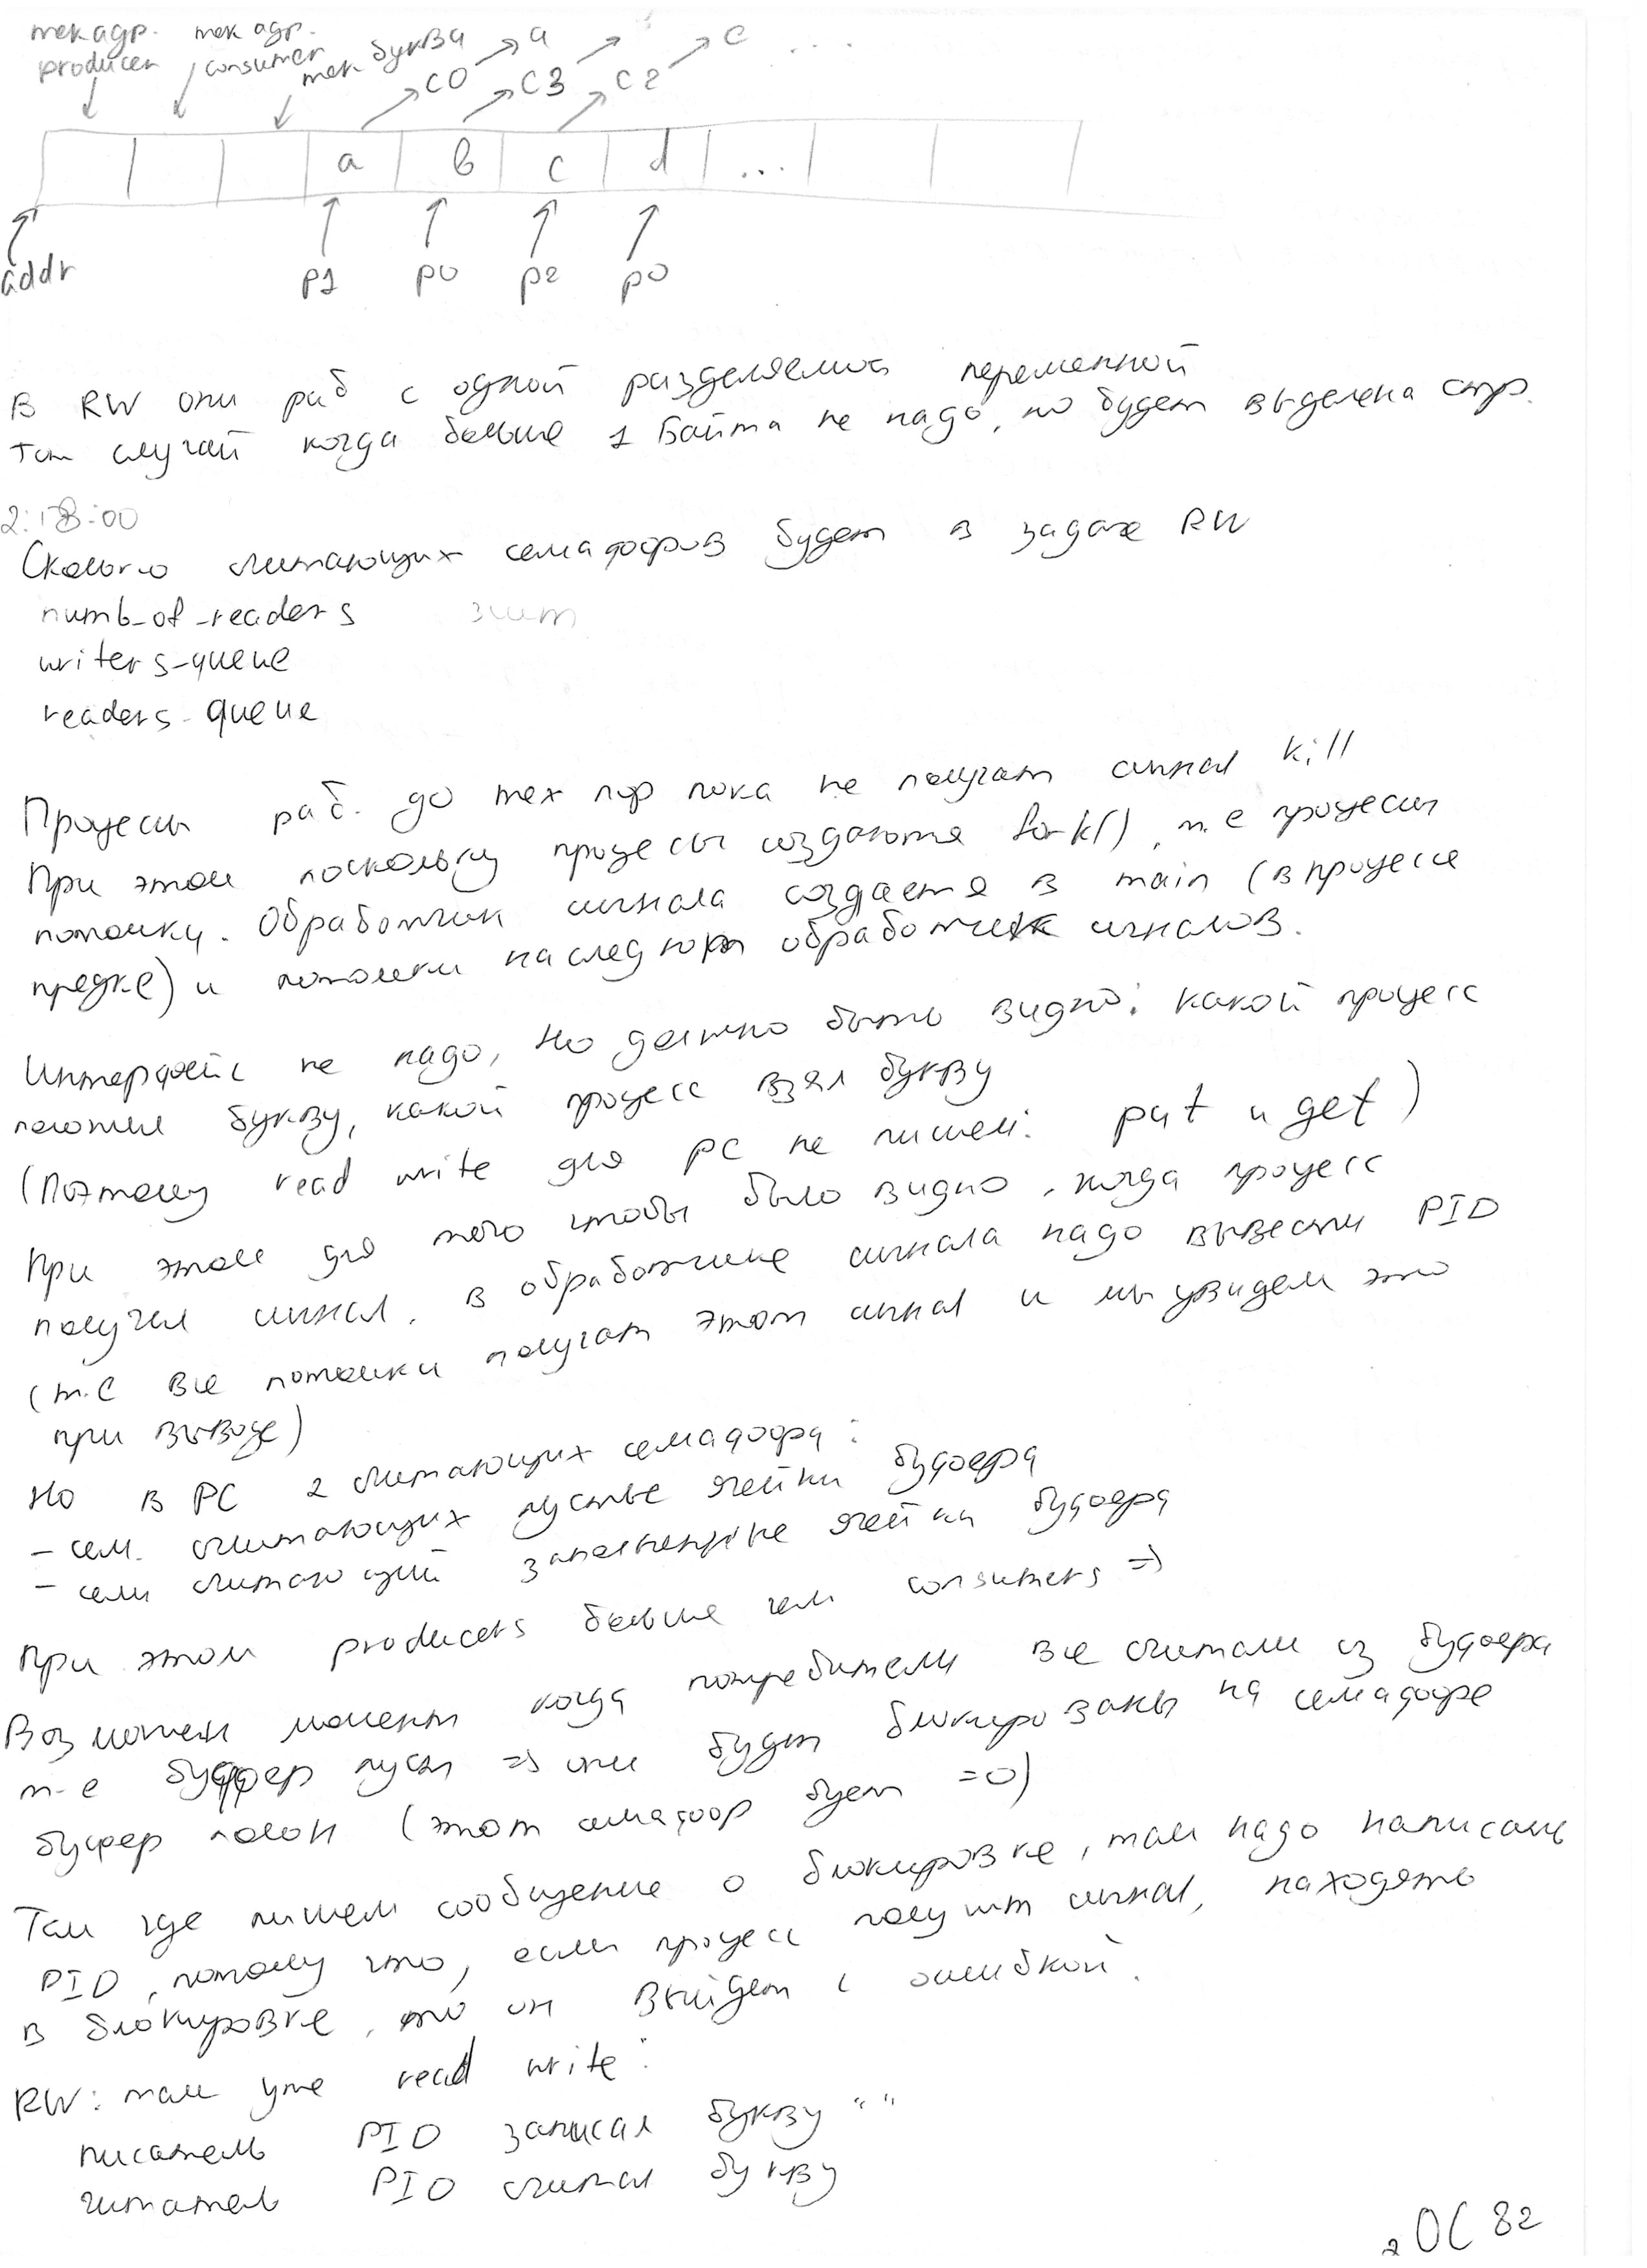 тек адр. тек адр.
producer consumer тек буква
c0 a c3 c2 c ...
a b c d ...
addr
p1 p0 p2 p0
В RW они раб с одной разделяемой переменной
Тот случай когда больше 1 байта не надо, но будет выделена стр.
2:18:00
Сколько считающих семафоров будет в задаче RW
numb_of_readers
writers-queue
readers-queue
Процессы раб. до тех пор пока не получат сигнал kill
При этом поскольку процессы создаются fork(), т.е процессы
потомки. Обработчик сигнала создается в main (в процессе
предке) и потомки наследуют обработчик сигналов.
Интерфейс не надо, но должно быть видно: какой процесс
положил букву, какой процесс взял букву
(Поэтому read write для PC не пишем: put и get)
При этом для того чтобы было видно, когда процесс
получил сигнал, в обработчике сигнала надо вывести PID
(т.е все потомки получат этот сигнал и мы увидим это
при выводе)
Но в PC 2 считающих семафора:
- сем. считающих пустые ячейки буфера
- сем считающий заполненные ячейки буфера
При этом producers больше чем consumers =>
Возможен момент когда потребители все считали из буфера
т-е буфер пуст => они будут блокированы на семафоре
буфер полон (этот семафор бует =0)
Там где пишем сообщение о блокировке, там надо написать
PID, потому что, если процесс получит сигнал, находясь
в блокировке, то он выйдет с ошибкой.
RW: там уже read write:
писатель PID записал букву " "
читатель PID считал букву
ОС 82